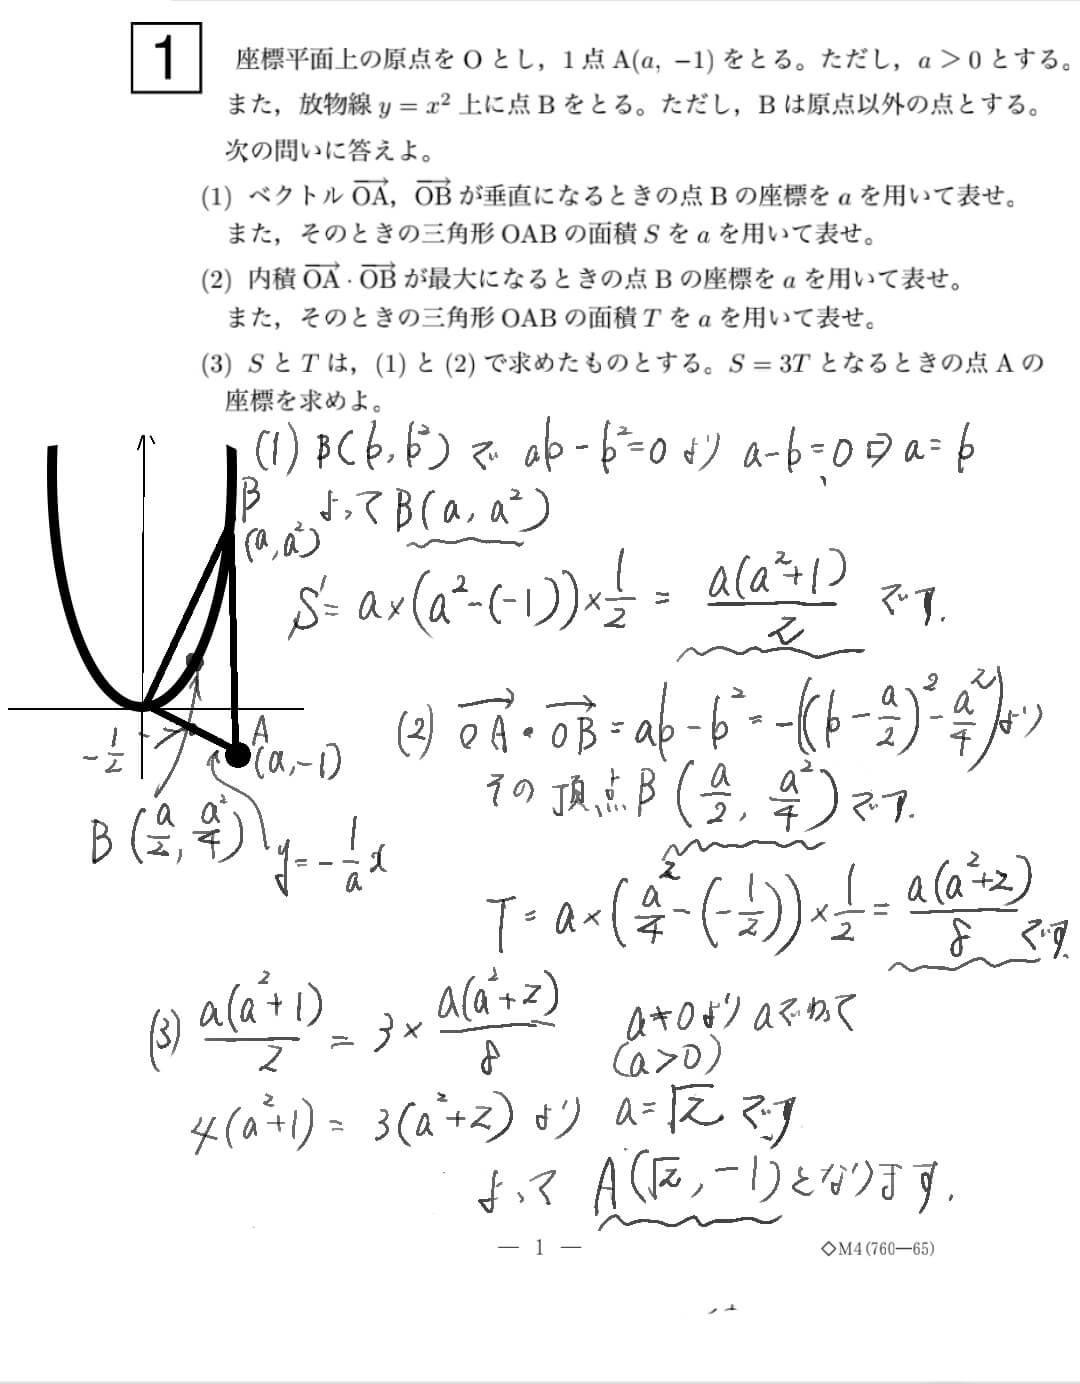 1
座標平面上の原点を O とし，1 点 A(a, −1) をとる。ただし，a > 0 とする。
また，放物線 y = x² 上に点 B をとる。ただし，B は原点以外の点とする。
次の問いに答えよ。
(1) ベクトル \overrightarrow{OA}，\overrightarrow{OB} が垂直になるときの点 B の座標を a を用いて表せ。
また，そのときの三角形 OAB の面積 S を a を用いて表せ。
(2) 内積 \overrightarrow{OA}・\overrightarrow{OB} が最大になるときの点 B の座標を a を用いて表せ。
また，そのときの三角形 OAB の面積 T を a を用いて表せ。
(3) S と T は，(1) と (2) で求めたものとする。S = 3T となるときの点 A の
座標を求めよ。
(1) B(b, b²) で ab − b² = 0 より a − b = 0 ⇨ a = b
よって B(a, a²)
B
(a, a²)
S = a × (a² − (−1)) × 1/2 = a(a²+1)/2 です.
A
(a, −1)
−1/2
B (a/2, a²/4)
y = −1/a x
(2) \overrightarrow{OA}・\overrightarrow{OB} = ab − b² = −((b − a/2)² − a²/4) より
その頂点 B (a/2, a²/4) です.
T = a × (a²/4 − (−1/2)) × 1/2 = a(a²+2)/8 です.
(3) a(a²+1)/2 = 3 × a(a²+2)/8 a≠0より aでわって
(a>0)
4(a²+1) = 3(a²+2) より a = √2 です
よって A(√2, −1) となります.
— 1 —
◇M4(760—65)